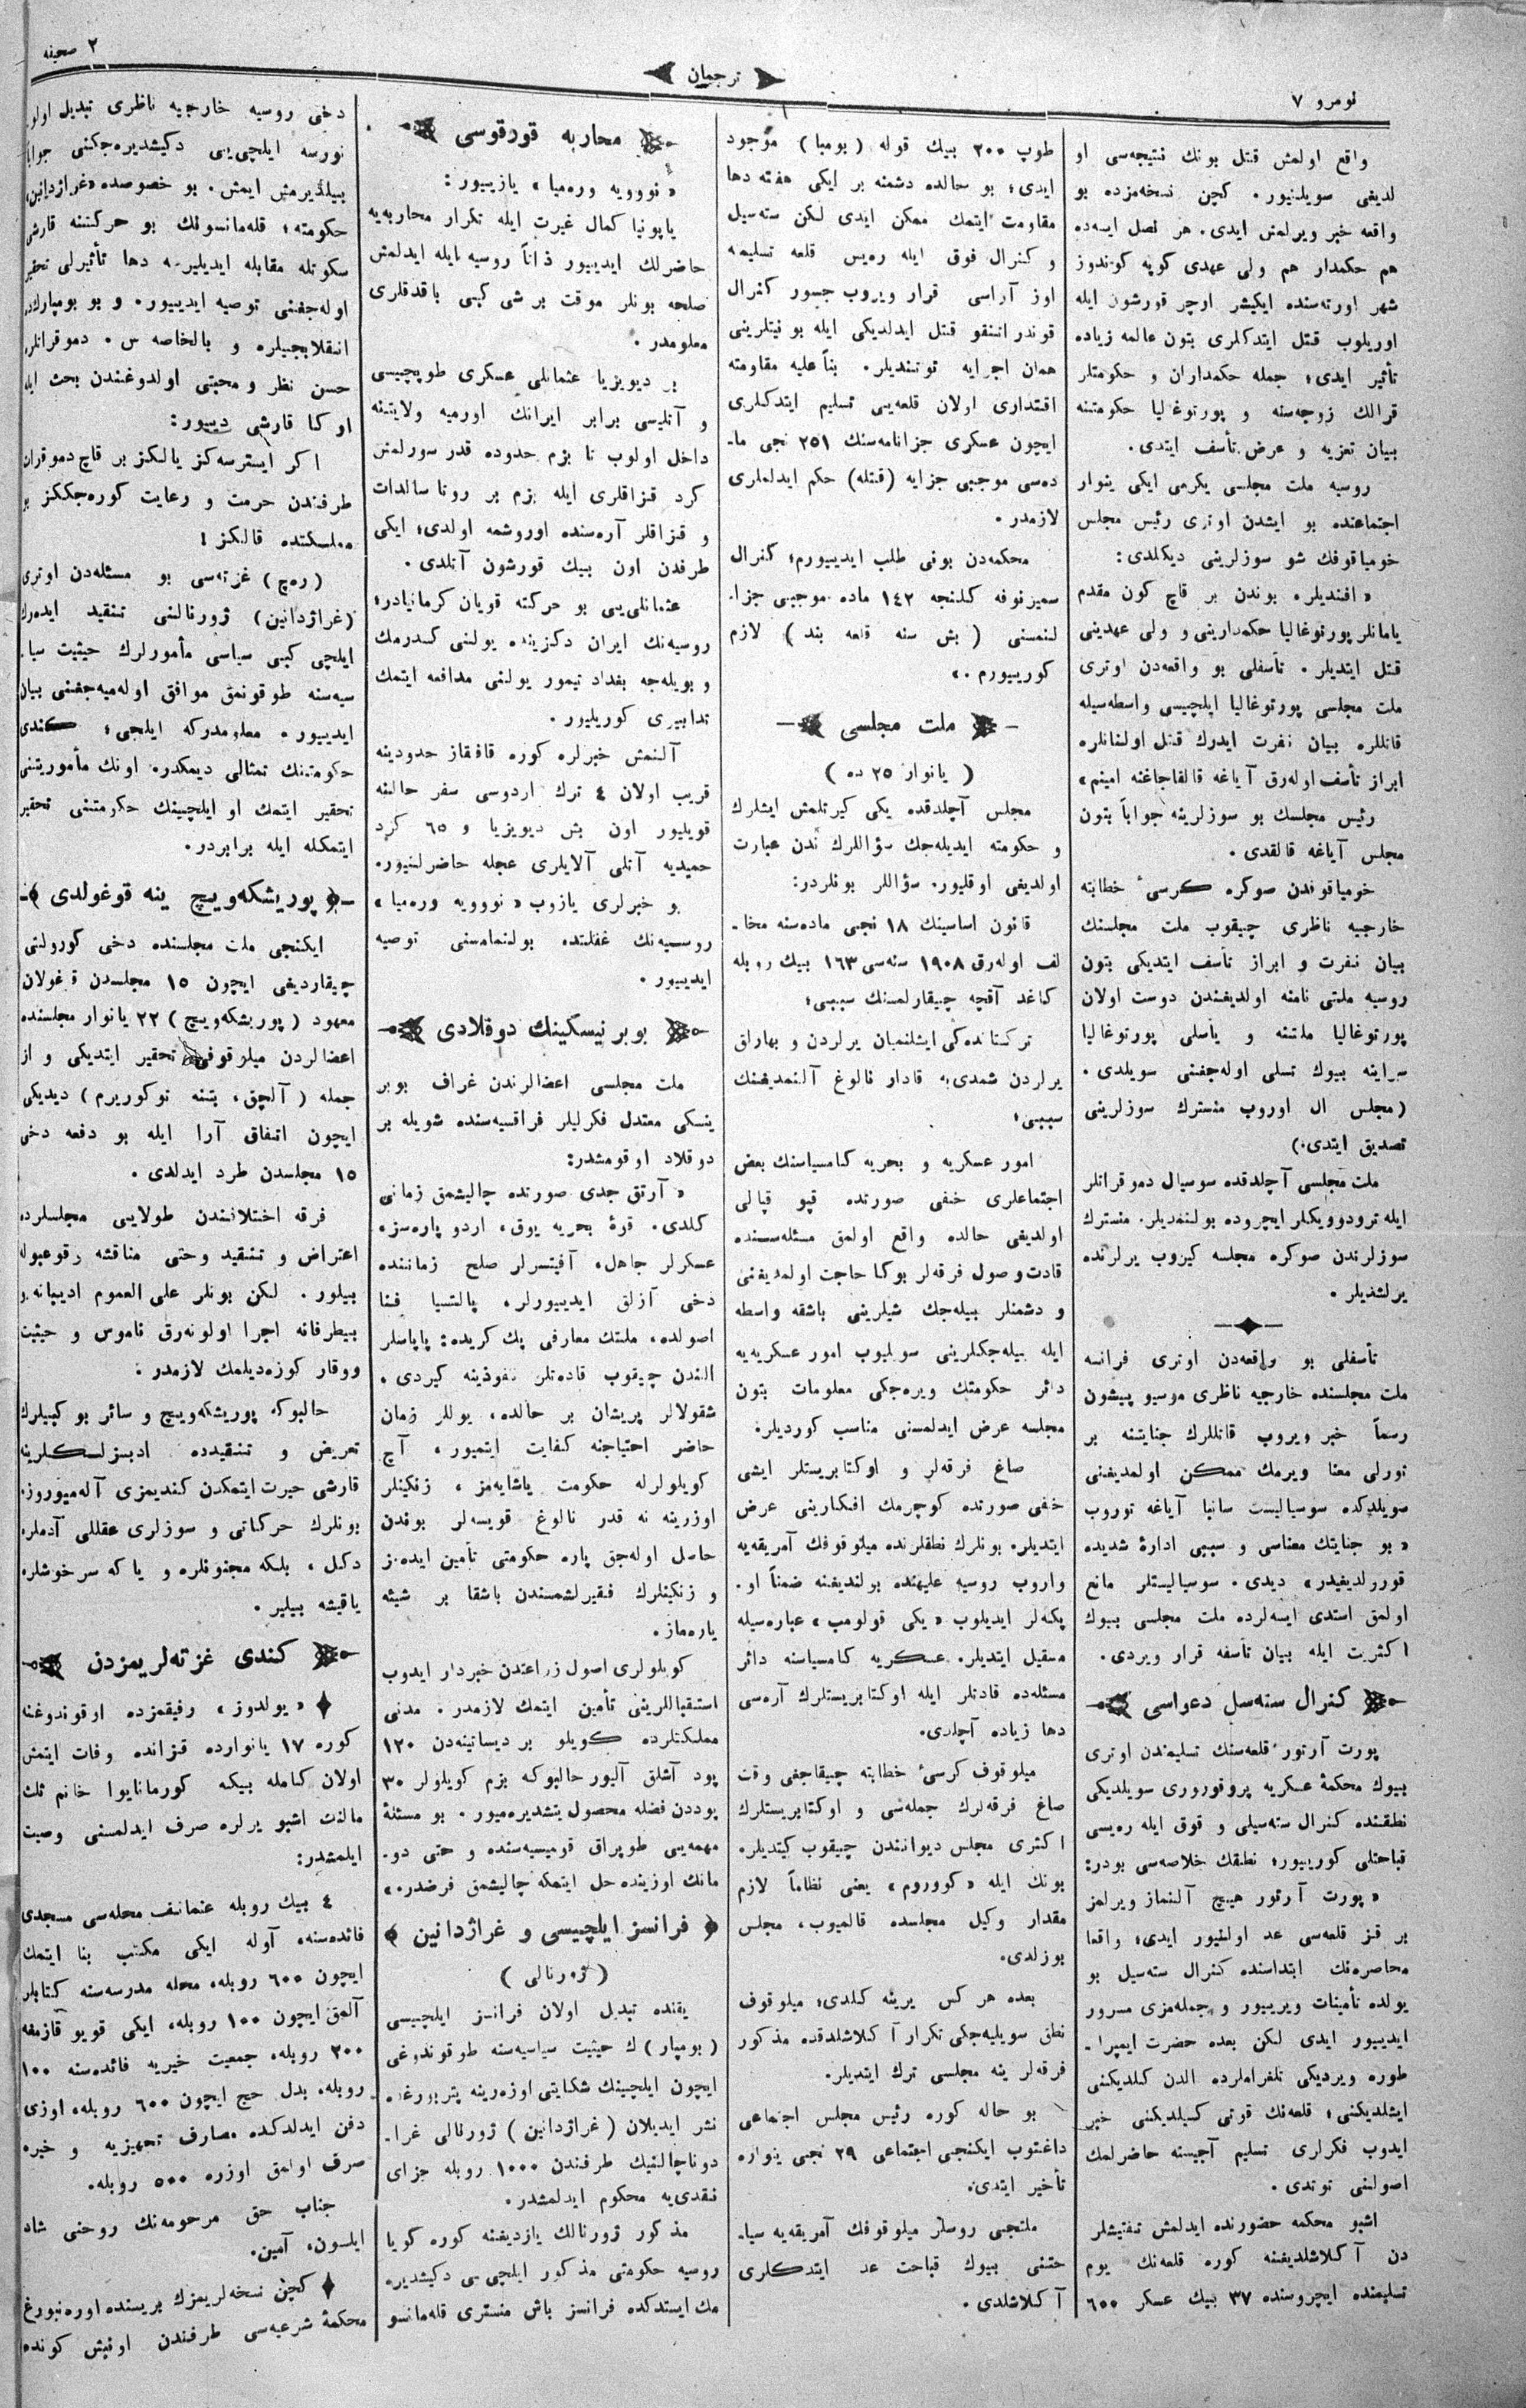 نومرو ٧
ترجمان
٢ صحيفه
واقع اولمش قتل بونك نتيجه‌سى او
لديغى سويلنيور. كچن نسخه‌مزده بو
واقعه خبر ويرلمش ايدى. هر نصل ايسه‌ده
هم حكمدار هم ولى عهدى كوپه كوندوز
شهر اورته‌سنده ايكيشر اوچر قورشون ايله
اوريلوب قتل ايتدكلرى بتون عالمه زياده
تأثير ايدى؛ جمله حكمداران و حكومتلر
قرالك زوجه‌سنه و پورتوغاليا حكومتنه
بيان تعزيه و عرض تأسف ايتدى.
روسيه ملت مجلسى يكرمى ايكى ينوار
اجتماعنده بو ايشدن اوترى رئيس مجلس
خومياقوفك شو سوزلرينى ديكلدى:
« افنديلر، بوندن بر قاچ كون مقدم
يامانلر پورتوغاليا حكمدارينى و ولى عهدينى
قتل ايتديلر. تأسفلى بو واقعه‌دن اوترى
ملت مجلسى پورتوغاليا ايلچيسى واسطه‌سيله
قاتللره بيان نفرت ايدرك قتل اولنانلره
ابراز تأسف اوله‌رق آياغه قالقاجاغنه امينم »
رئيس مجلسك بو سوزلرينه جواباً بتون
مجلس آياغه قالقدى.
خومياقوفدن صوكره كرسىٔ خطابته
خارجيه ناظرى چيقوب ملت مجلسنك
بيان نفرت و ابراز تأسف ايتديكى بتون
روسيه ملتى نامنه اولديغندن دوست اولان
پورتوغاليا ملتنه و ياسلى پورتوغاليا
سراينه بيوك تسلى اوله‌جغنى سويلدى.
(مجلس ال اوروب منسترك سوزلرينى
تصديق ايتدى.)
ملت مجلسى آچلدقده سوسيال دموقراتلر
ايله ترودوويكلر ايچروده بولنمديلر. منسترك
سوزلرندن صوكره مجلسه كيروب يرلرنده
يرلشديلر.
تأسفلى بو واقعه‌دن اوترى فرانسه
ملت مجلسنده خارجيه ناظرى موسيو پيشون
رسماً خبر ويروب قاتللرك جنايتنه بر
تورلى معنا ويرمك ممكن اولمديغنى
سويلدكده سوسياليست سانبا آياغه توروب
« بو جنايتك معناسى و سببى ادارهٔ شديده
قوررلديغيدر » ديدى. سوسياليستلر مانع
اولمق استدى ايسه‌لرده ملت مجلسى بيوك
اكثريت ايله بيان تأسفه قرار ويردى.
كنرال سته‌سل دعواسى
پورت آرتور قلعه‌سنك تسليمندن اوترى
بيوك محكمهٔ عسكريه پروقورورى سويلديكى
نطقنده كنرال سته‌سيلى و فوق ايله ره‌يسى
قباحتلى كورييور؛ نطقك خلاصه‌سى بودر:
« پورت آرتور هيچ آلنماز ويرلمز
بر قز قلعه‌سى عد اولنيور ايدى؛ واقعا
محاصره‌نك ابتداسنده كنرال سته‌سيل بو
يولده تأمينات ويرييور و جمله‌مزى مسرور
ايدييور ايدى لكن بعده حضرت ايمپرا-
طوره ويرديكى تلغراملرده الدن كلديكنى
ايشلديكنى؛ قلعه‌نك قوتى كسلديكنى خبر
ايدوب فكرلرى تسليم آجيسنه حاضرلمك
اصولنى توتدى.
اشبو محكمه حضورنده ايدلمش تفتيشلر
دن آكلاشلديغنه كوره قلعه‌نك يوم
تسليمنده ايچروسنده ٣٧ بيك عسكر ٦٠٠
طوپ ٢٠٠ بيك قوله (بومبا) موجود
ايدى؛ بو حالده دشمنه بر ايكى هفته دها
مقاومت ايتمك ممكن ايدى لكن سته‌سيل
و كنرال فوق ايله ره‌يس قلعه تسليمه
اوز آراسى قرار ويروب جسور كنرال
قوندراتنقو قتل ايدلديكى ايله بو نيتلرينى
همان اجرايه توتنديلر. بناً عليه مقاومته
اقتدارى اولان قلعه‌يى تسليم ايتدكلرى
ايچون عسكرى جزانامه‌سنك ٢٥١ نجى ما-
ده‌سى موجبى جزايه (قتله) حكم ايدلملرى
لازمدر.
محكمه‌دن بونى طلب ايدييورم؛ كنرال
سميرنوفه كلنجه ١٤٢ ماده موجبى جزا-
لنمسنى (بش سنه قلعه بند) لازم
كورييورم. »
ملت مجلسى
( يانوار ٢٥ ده )
مجلس آچلدقده يكى كيرتلمش ايشلرك
و حكومته ايديله‌جك سؤاللرك ندن عبارت
اولديغى اوقليور. سؤاللر بونلردر:
قانون اساسينك ١٨ نجى ماده‌سنه مخا-
لف اوله‌رق ١٩٠٨ سنه‌سى ١٦٣ بيك روبله
كاغد آقچه چيقارلمسنك سببى؛
تركستانده‌كى ايشلنميان يرلردن و بهاراق
يرلردن شمدى‌يه قادار نالوغ آلنمديغنك
سببى؛
امور عسكريه و بحريه كامسياسنك بعض
اجتماعلرى خفى صورتده قپو قپالى
اولديغى حالده واقع اولمق مسئله‌سنده
قادت وصول فرقه‌لر بوكا حاجت اولمديغنى
و دشمنلر بيله‌جك شيلرينى باشقه واسطه
ايله بيله‌جكلرينى سويليوب امور عسكريه‌يه
دائر حكومتك ويره‌جكى معلومات بتون
مجلسه عرض ايدلمسنى مناسب كورديلر.
صاغ فرقه‌لر و اوكتابريستلر ايشى
خفى صورتده كوچرمك افكارينى عرض
ايتديلر. بونلرك نطقلرنده ميلوقوفك آمريقه‌يه
واروب روسيه عليهنده بولنديغنه ضمناً او-
پكه‌لر ايديلوب « يكى قولومب » عباره‌سيله
مسقيل ايتديلر. عسكريه كامسياسنه دائر
مسئله‌ده قادتلر ايله اوكتابريستلرك آره‌سى
دها زياده آچلدى.
ميلوقوف كرسىٔ خطابته چيقاجغى وقت
صاغ فرقه‌لرك جمله‌سى و اوكتابريستلرك
اكثرى مجلس ديوانندن چيقوب كيتديلر.
بونك ايله « كووروم » يعنى نظاماً لازم
مقدار وكيل مجلسده قالميوب، مجلس
بوزلدى.
بعده هر كس يرينه كلدى؛ ميلوقوف
نطق سويليه‌جكى تكرار آكلاشلدقده مذكور
فرقه‌لر ينه مجلسى ترك ايتديلر.
بو حاله كوره رئيس مجلس اجتماعى
داغتوب ايكنجى اجتماعى ٢٩ نجى ينواره
تأخير ايتدى.
ملتجى روسلر ميلوقوفك آمريقه‌يه سيا-
حتنى بيوك قباحت عد ايتدكلرى
آكلاشلدى.
محاربه قورقوسى
« نوويه وره‌ميا » يازييور:
ياپونيا كمال غيرت ايله تكرار محاربه‌يه
حاضرلك ايدييور ذاتاً روسيه ايله ايدلمش
صلحه بونلر موقت بر شى كبى باقدقلرى
معلومدر.
بر ديويزيا عثمانلى عسكرى طوپجيسى
و آتليسى برابر ايرانك اورميه ولايتنه
داخل اولوب تا بزم حدوده قدر سورلمش
كرد قزاقلرى ايله بزم بر روتا سالدات
و قزاقلر آره‌سنده اوروشمه اولدى؛ ايكى
طرفدن اون بيك قورشون آتلدى.
عثمانلى‌يى بو حركته قويان كرمانيادر؛
روسيه‌نك ايران دكزينه يولنى كسدرمك
و بويله‌جه بغداد تيمور يولنى مدافعه ايتمك
تدابيرى كوريليور.
آلنمش خبرلره كوره قافقاز حدودينه
قريب اولان ٤ ترك اردوسى سفر حالنه
قويليور اون بش ديويزيا و ٦٥ كرد
حميديه آتلى آلايلرى عجله حاضرلنيور.
بو خبرلرى يازوب « نوويه وره‌ميا »
روسيه‌نك غفلتده بولنمامسنى توصيه
ايدييور.
بوبرنيسكينك دوقلادى
ملت مجلسى اعضالرندن غراف بوبر
ينسكى معتدل فكرليلر فراقسيه‌سنده شويله بر
دوقلاد اوقومشدر:
« آرتق جدى صورتده چاليشمق زمانى
كلدى. قرۀ بحريه يوق، اردو پاره‌سز،
عسكرلر جاهل، آفيتسرلر صلح زماننده
دخى آزلق ايدييورلر، پالتسيا فنا
اصولده، ملتك معارفى پك كريده: پاپاسلر
الندن چيقوب قاده‌تلر نفوذينه كيردى.
شقولالر پريشان بر حالده، يوللر زمان
حاضر احتياجنه كفايت ايتميور، آچ
كويلولرله حكومت ياشايه‌مز، زنكينلر
اوزرينه نه قدر نالوغ قويسه‌لر بوندن
حاصل اوله‌جق پاره حكومتى تأمين ايده‌مز
و زنكينلرك فقيرلشمسندن باشقا بر شيئه
ياره‌ماز.
كويلولرى اصول زراعتدن خبردار ايدوب
استقباللرينى تأمين ايتمك لازمدر. مدنى
مملكتلرده كويلو بر ديساتينه‌دن ١٢٠
پود آشلق آليور حالبوكه بزم كويلولر ٣٠
پوددن فضله محصول يتشديره‌ميور. بو مسئلهٔ
مهمه‌يى طوپراق قوميسيه‌سنده و حتى دو-
مانك اوزينده حل ايتمكه چاليشمق فرضدر. »
فرانسز ايلچيسى و غراژدانين
( ژورنالى )
يقنده تبديل اولان فرانسز ايلچيسى
(بومپار) ك حيثيت سياسيه‌سنه طوقوندوغى
ايچون ايلچينك شكايتى اوزه‌رينه پتربورغده
نشر ايديلان (غراژدانين) ژورنالى غرا-
دوناچالنيك طرفندن ١٠٠٠ روبله جزاى
نقدى‌يه محكوم ايدلمشدر.
مذكور ژورنالك يازديغنه كوره كويا
روسيه حكومتى مذكور ايلچى‌يى دكيشديره
مك ايستدكده فرانسز باش منسترى قله‌مانسو
دخى روسيه خارجيه ناظرى تبديل اولو
نورسه ايلچى‌يى دكيشديره‌جكنى جواباً
بيلديرمش ايمش. بو خصوصده «غراژدانين»
حكومته؛ قله‌مانسونك بو حركتنه قارشى
سكوتله مقابله ايديليرسه دها تأثيرلى تحقير
اوله‌جغنى توصيه ايدييور. و بو بومپارك
انقلابجيلره و بالخاصه س. دموقراتلره
حسن نظر و محبتى اولدوغندن بحث ايله
اوكا قارشى دييور:
اكر ايسترسه‌كز يالكز بر قاچ دموقرات
طرفندن حرمت و رعايت كوره‌جككز بر
مملكتده قالكز!
(ره‌چ) غزته‌سى بو مسئله‌دن اوترى
(غراژدانين) ژورنالنى تنقيد ايده‌رك
ايلچى كبى سياسى مأمورلرك حيثيت سيا-
سيه‌سنه طوقونمق موافق اوله‌ميه‌جغنى بيان
ايدييور. معلومدركه ايلچى؛ كندى
حكومتنك تمثالى ديمكدر. اونك مأموريتنى
تحقير ايتمك او ايلچينك حكومتنى تحقير
ايتمكله ايله برابردر.
پوريشكه‌ويچ ينه قوغولدى
ايكنجى ملت مجلسنده دخى كورولتى
چيقارديغى ايچون ١٥ مجلسدن قوغولان
معهود (پوريشكه‌ويچ) ٢٢ يانوار مجلسنده
اعضالردن ميلوقوفى تحقير ايتديكى و از
جمله (آلچق، يتنه توكوريرم) ديديكى
ايچون اتفاق آرا ايله بو دفعه دخى
١٥ مجلسدن طرد ايدلدى.
فرقه اختلافندن طولايى مجلسلرده
اعتراض و تنقيد وحتى مناقشه وقوعبوله
بيلور. لكن بونلر على العموم اديبانه و
بيطرفانه اجرا اولونه‌رق ناموس و حيثيت
ووقار كوزه‌ديلمك لازمدر.
حالبوكه پوريشكه‌ويچ و سائر بو كبيلرك
تعريض و تنقيدده ادبسزلكلرينه
قارشى حيرت ايتمكدن كنديمزى آله‌ميوروز.
بونلرك حركاتى و سوزلرى عقللى آدملره
دكل، بلكه مجنونلره و ياكه سرخوشلره
ياقيشه بيلير.
كندى غزته‌لريمزدن
« يولدوز » رفيقمزده اوقوندوغنه
كوره ١٧ يانوارده قزانده وفات ايتمش
اولان كامله بيكه كورمانايوا خانم ثلث
مالندن اشبو يرلره صرف ايدلمسنى وصيت
ايلمشدر:
٤ بيك روبله عثمانف محله‌سى مسجدى
فائده‌سنه، آوله ايكى مكتب بنا ايتمك
ايچون ٦٠٠ روبله، محله مدرسه‌سنه كتابلر
آلمق ايچون ١٠٠ روبله، ايكى قويو قازمغه
٢٠٠ روبله، جمعيت خيريه فائده‌سنه ١٠٠
روبله، بدل حج ايچون ٦٠٠ روبله، اوزى
دفن ايدلدكده مصارف تجهيزيه و خيره
صرف اولمق اوزره ٥٠٠ روبله.
جناب حق مرحومه‌نك روحنى شاد
ايلسون، آمين.
كچن نسخه‌لريمزك بريسنده اوره‌نبورغ
محكمهٔ شرعيه‌سى طرفندن اوتيش كونده